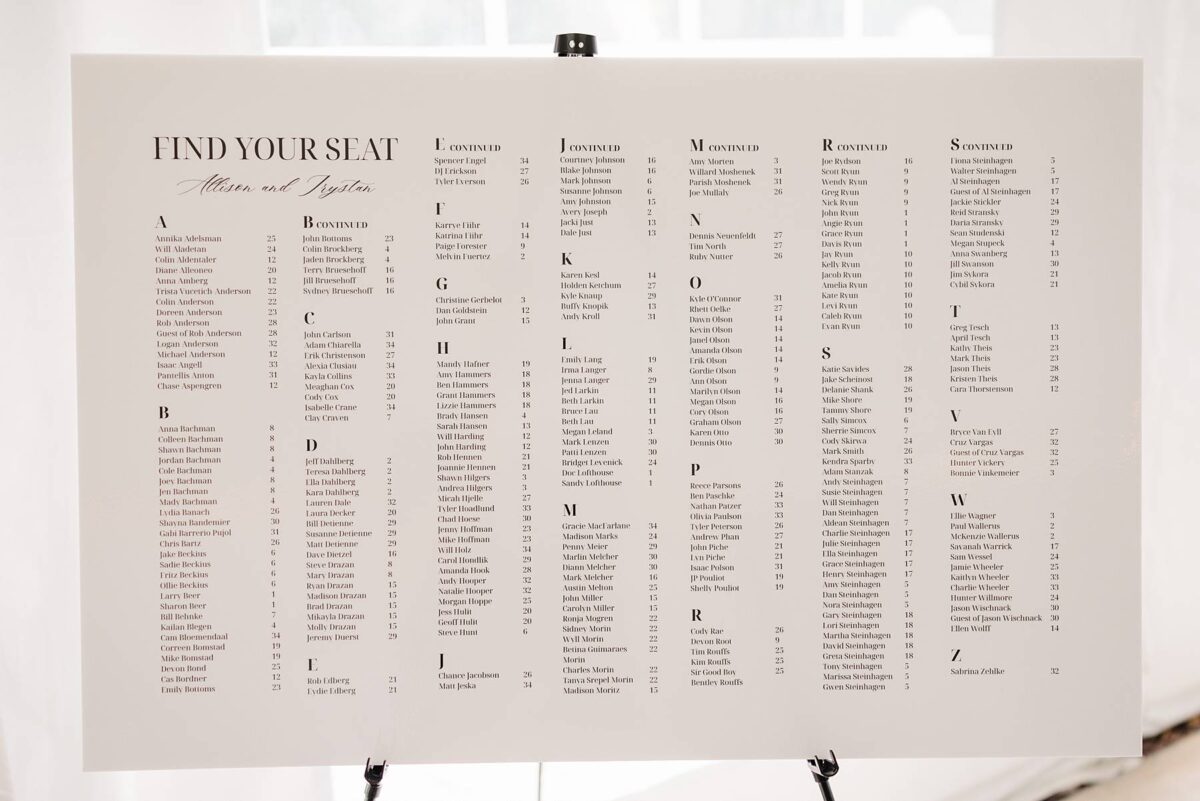 FIND YOUR SEAT
Allison and Trystan
A
Annika Adelsman 25
Will Aladetan 24
Colin Aldentaler 12
Diane Alleoneo 20
Anna Amberg 12
Trista Vucetich-Anderson 22
Colin Anderson 22
Doreen Anderson 23
Rob Anderson 28
Guest of Rob Anderson 28
Logan Anderson 32
Michael Anderson 12
Isaac Angell 33
Pantellis Anton 31
Chase Aspengren 12
B
Anna Bachman 8
Colleen Bachman 8
Shawn Bachman 8
Jordan Bachman 4
Cole Bachman 4
Joey Bachman 8
Jen Bachman 8
Mady Bachman 4
Lydia Banach 26
Shayna Bandemier 30
Gabi Barrerio Pujol 31
Chris Bartz 26
Jake Beckius 6
Sadie Beckius 6
Fritz Beckius 6
Ollie Beckius 6
Larry Beer 1
Sharon Beer 1
Bill Behnke 7
Kailan Blegen 4
Cam Bloemendaal 34
Correen Bomstad 19
Mike Bomstad 19
Devon Bond 25
Cas Bordner 12
Emily Bottoms 23
B CONTINUED
John Bottoms 23
Colin Brockberg 4
Jaden Brockberg 4
Terry Brueschoff 16
Jill Brueschoff 16
Sydney Brueschoff 16
C
John Carlson 31
Adam Chiarella 34
Erik Christenson 27
Alexia Clusiau 34
Kayla Collins 33
Meaghan Cox 20
Cody Cox 20
Isabelle Crane 34
Clay Craven 7
D
Jeff Dahlberg 2
Teresa Dahlberg 2
Ella Dahlberg 2
Kara Dahlberg 2
Lauren Dale 32
Laura Decker 20
Bill Detienne 29
Susanne Detienne 29
Matt Detienne 29
Dave Dietzel 16
Steve Drazan 8
Mary Drazan 8
Ryan Drazan 15
Madison Drazan 15
Brad Drazan 15
Mikayla Drazan 15
Molly Drazan 15
Jeremy Duerst 29
E
Rob Edberg 21
Lydie Edberg 21
E CONTINUED
Spencer Engel 34
DJ Erickson 27
Tyler Everson 26
F
Karrye Fiihr 14
Katrina Fiihr 14
Paige Forester 9
Melvin Fuertez 2
G
Christine Gerbelot 3
Dan Goldstein 12
John Grant 15
H
Mandy Hafner 19
Amy Hammers 18
Ben Hammers 18
Grant Hammers 18
Lizzie Hammers 18
Brady Hansen 4
Sarah Hansen 13
Will Harding 12
John Harding 12
Rob Hennen 21
Joannie Hennen 21
Shawn Hilgers 3
Andrea Hilgers 3
Micah Hjelle 27
Tyler Hoadlund 33
Chad Hoese 30
Jenny Hoffman 23
Mike Hoffman 23
Will Holz 34
Carol Hondlik 29
Amanda Hook 28
Andy Hooper 32
Natalie Hooper 32
Morgan Hoppe 25
Jess Hulit 20
Geoff Hulit 20
Steve Hunt 6
J
Chance Jacobson 26
Matt Jeska 34
J CONTINUED
Courtney Johnson 16
Blake Johnson 16
Mark Johnson 6
Susanne Johnson 6
Amy Johnston 15
Avery Joseph 2
Jacki Just 13
Dale Just 13
K
Karen Kesl 14
Holden Ketchum 27
Kyle Knaup 29
Buffy Knopik 13
Andy Kroll 31
L
Emily Lang 19
Irma Langer 8
Jenna Langer 29
Jed Larkin 11
Beth Larkin 11
Bruce Lau 11
Beth Lau 11
Megan Leland 3
Mark Lenzen 30
Patti Lenzen 30
Bridget Levenick 24
Doc Lofthouse 1
Sandy Lofthouse 1
M
Gracie MacFarlane 34
Madison Marks 24
Penny Meier 29
Marlin Melcher 30
Diann Melcher 30
Mark Melcher 16
Austin Melton 25
John Miller 15
Carolyn Miller 15
Ronja Mogren 22
Sidney Morin 22
Wyll Morin 22
Betina Guimaraes 22
Morin
Charles Morin 22
Tanya Srepel Morin 22
Madison Moritz 15
M CONTINUED
Amy Morten 3
Willard Moshenek 31
Parish Moshenek 31
Joe Mullaly 26
N
Dennis Neuenfeldt 27
Tim North 27
Ruby Nutter 26
O
Kyle O'Connor 31
Rhett Oelke 27
Dawn Olson 14
Kevin Olson 14
Janel Olson 14
Amanda Olson 14
Erik Olson 14
Gordie Olson 9
Ann Olson 9
Marilyn Olson 14
Megan Olson 16
Cory Olson 16
Graham Olson 27
Karen Otto 30
Dennis Otto 30
P
Reece Parsons 26
Ben Paschke 24
Nathan Patzer 33
Olivia Paulson 33
Tyler Peterson 26
Andrew Phan 27
John Piche 21
Lyn Piche 21
Isaac Polson 31
JP Pouliot 19
Shelly Pouliot 19
R
Cody Rae 26
Devon Root 9
Tim Rouffs 25
Kim Rouffs 25
Sir Good Boy 25
Bentley Rouffs
R CONTINUED
Joe Rydson 16
Scott Ryun 9
Wendy Ryun 9
Greg Ryun 9
Nick Ryun 9
John Ryun 1
Angie Ryun 1
Grace Ryun 1
Davis Ryun 1
Jay Ryun 10
Kelly Ryun 10
Jacob Ryun 10
Amelia Ryun 10
Kate Ryun 10
Levi Ryun 10
Caleb Ryun 10
Evan Ryun 10
S
Katie Savides 28
Jake Scheinost 18
Delanie Shank 26
Mike Shore 19
Tammy Shore 19
Sally Simcox 6
Sherrie Simcox 7
Cody Skirwa 24
Mark Smith 26
Kendra Sparby 33
Adam Stanzak 8
Andy Steinhagen 7
Susie Steinhagen 7
Will Steinhagen 7
Dan Steinhagen 7
Aldean Steinhagen 7
Charlie Steinhagen 17
Julie Steinhagen 17
Ella Steinhagen 17
Grace Steinhagen 17
Henry Steinhagen 17
Amy Steinhagen 5
Dan Steinhagen 5
Nora Steinhagen 5
Gary Steinhagen 18
Lori Steinhagen 18
Martha Steinhagen 18
David Steinhagen 18
Greta Steinhagen 18
Tony Steinhagen 5
Marissa Steinhagen 5
Gwen Steinhagen 5
S CONTINUED
Fiona Steinhagen 5
Walter Steinhagen 5
Al Steinhagen 17
Guest of Al Steinhagen 17
Jackie Stickler 24
Reid Stransky 29
Daria Stransky 29
Sean Studenski 12
Megan Stupeck 4
Anna Swanberg 13
Jill Swanson 30
Jim Sykora 21
Cybil Sykora 21
T
Greg Tesch 13
April Tesch 13
Kathy Theis 23
Mark Theis 23
Jason Theis 28
Kristen Theis 28
Cara Thorstenson 12
V
Bryce Van Eyll 27
Cruz Vargas 32
Guest of Cruz Vargas 32
Hunter Vickery 25
Bonnie Vinkemeier 3
W
Ellie Wagner 3
Paul Wallerus 2
McKenzie Wallerus 2
Savanah Warrick 17
Sam Wessel 24
Jamie Wheeler 25
Kaitlyn Wheeler 33
Charlie Wheeler 33
Hunter Willmore 24
Jason Wischnack 30
Guest of Jason Wischnack 30
Ellen Wolff 14
Z
Sabrina Zehlke 32